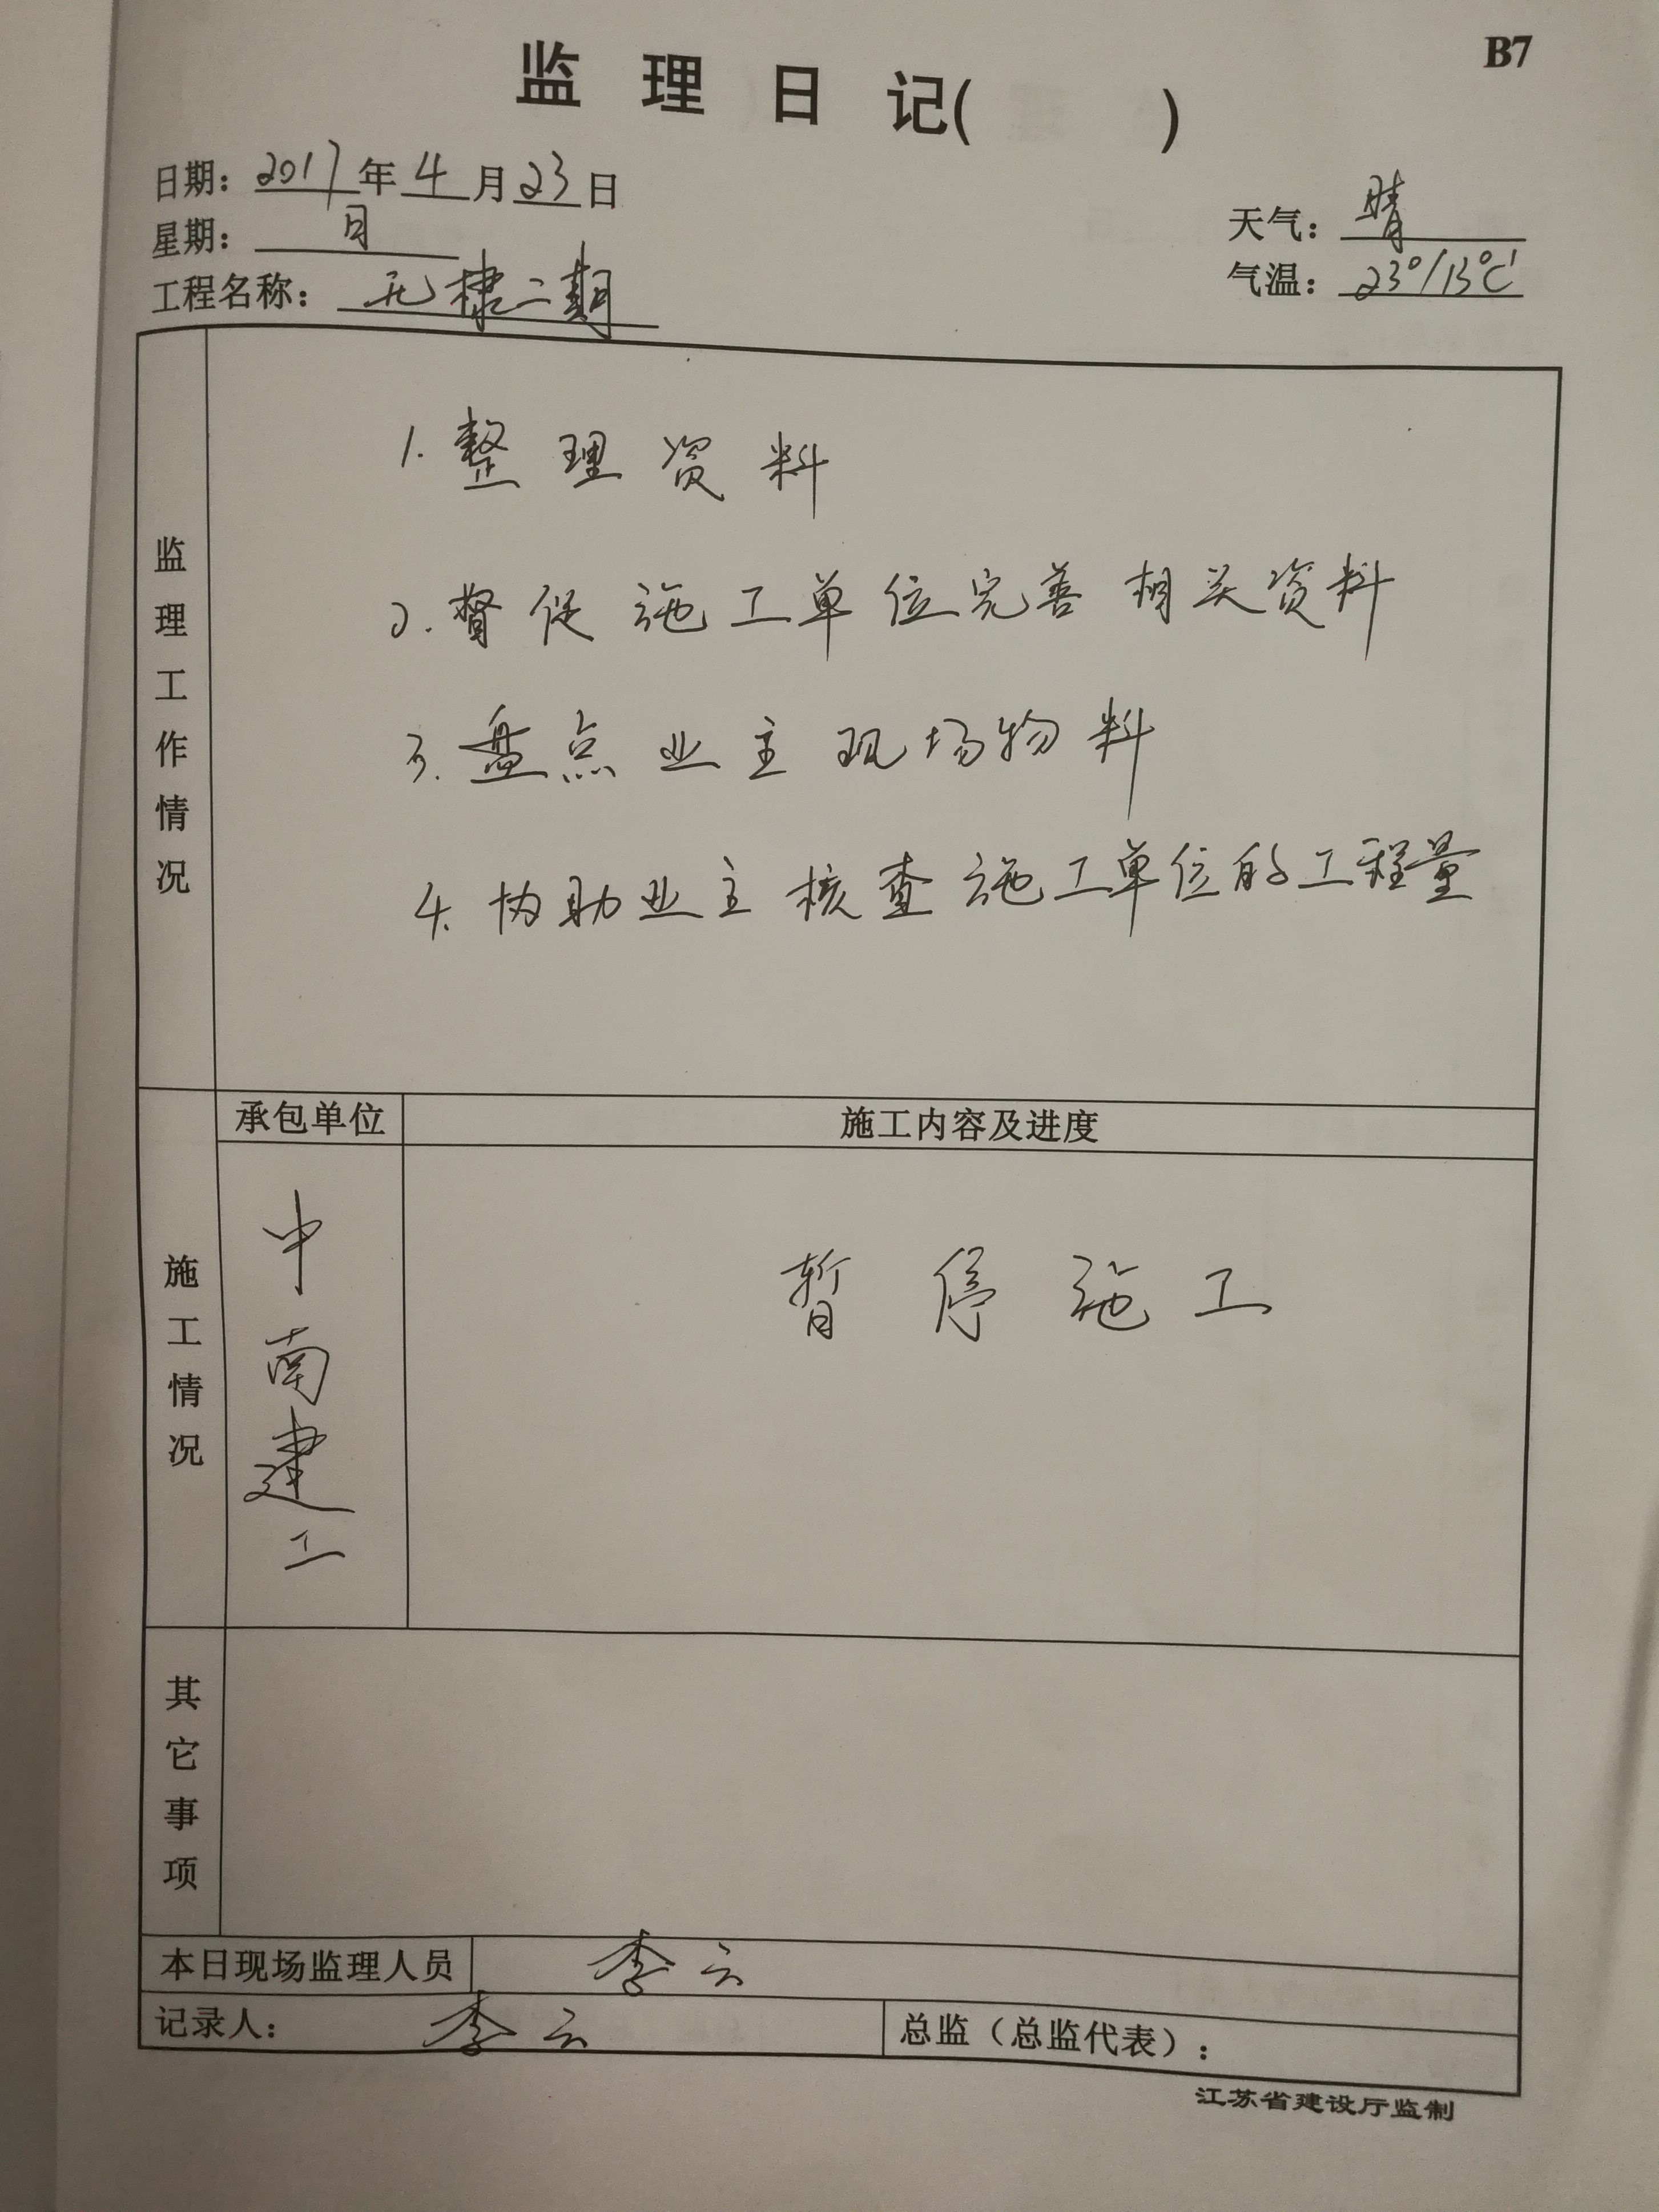 B7
监 理 日 记( )
日期：2017年4月23日
星期：日
天气：晴
工程名称：无棣二期
气温：23°/13℃
监理工作情况
1.整理资料
2.督促施工单位完善相关资料
3.盘点业主现场物料
4.协助业主核查施工单位的工程量
施工情况
承包单位
施工内容及进度
中南建工
暂停施工
其它事项
本日现场监理人员
李云
记录人：李云
总监（总监代表）：
江苏省建设厅监制